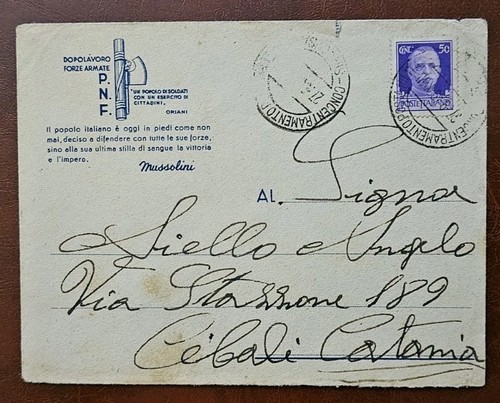 DOPOLAVORO
FORZE ARMATE
P.
N.
F.
"UN POPOLO DI SOLDATI
CON UN ESERCITO DI
CITTADINI,
ORIANI
Il popolo italiano è oggi in piedi come non
mai, deciso a difendere con tutte le sue forze,
sino alla sua ultima stilla di sangue la vittoria
e l'impero.
Mussolini
CONCENTRAMENTO
CENT. 50
POSTE ITALIANE
AL Signor
Aiello Angelo
Via Stazzone 189
Cibali Catania